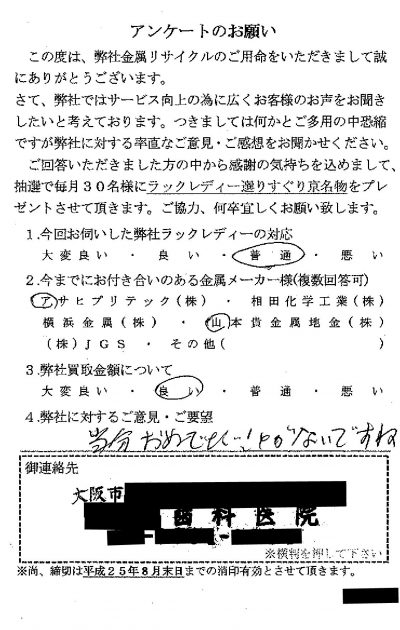 アンケートのお願い
この度は、弊社金属リサイクルのご用命をいただきまして誠
にありがとうございます。
さて、弊社ではサービス向上の為に広くお客様のお声をお聞き
したいと考えております。つきましては何かとご多用の中恐縮
ですが弊社に対する率直なご意見・ご感想をお聞かせください。
ご回答いただきました方の中から感謝の気持ちを込めまして、
抽選で毎月30名様にラックレディー選りすぐり京名物をプレ
ゼントさせて頂きます。ご協力、何卒宜しくお願い致します。
1.今回お伺いした弊社ラックレディーの対応
大変良い ・ 良い ・ 普通 ・ 悪い
2.今までにお付き合いのある金属メーカー様(複数回答可)
アサヒプリテック(株) ・ 相田化学工業(株)
横浜金属(株) ・ 山本貴金属地金(株)
(株)JGS ・ その他( )
3.弊社買取金額について
大変良い ・ 良い ・ 普通 ・ 悪い
4.弊社に対するご意見・ご要望
当分おめでたいことがないですね
御連絡先
大阪市
歯科医院
※横判を押して下さい
※尚、締切は平成25年8月末日までの消印有効とさせて頂きます。